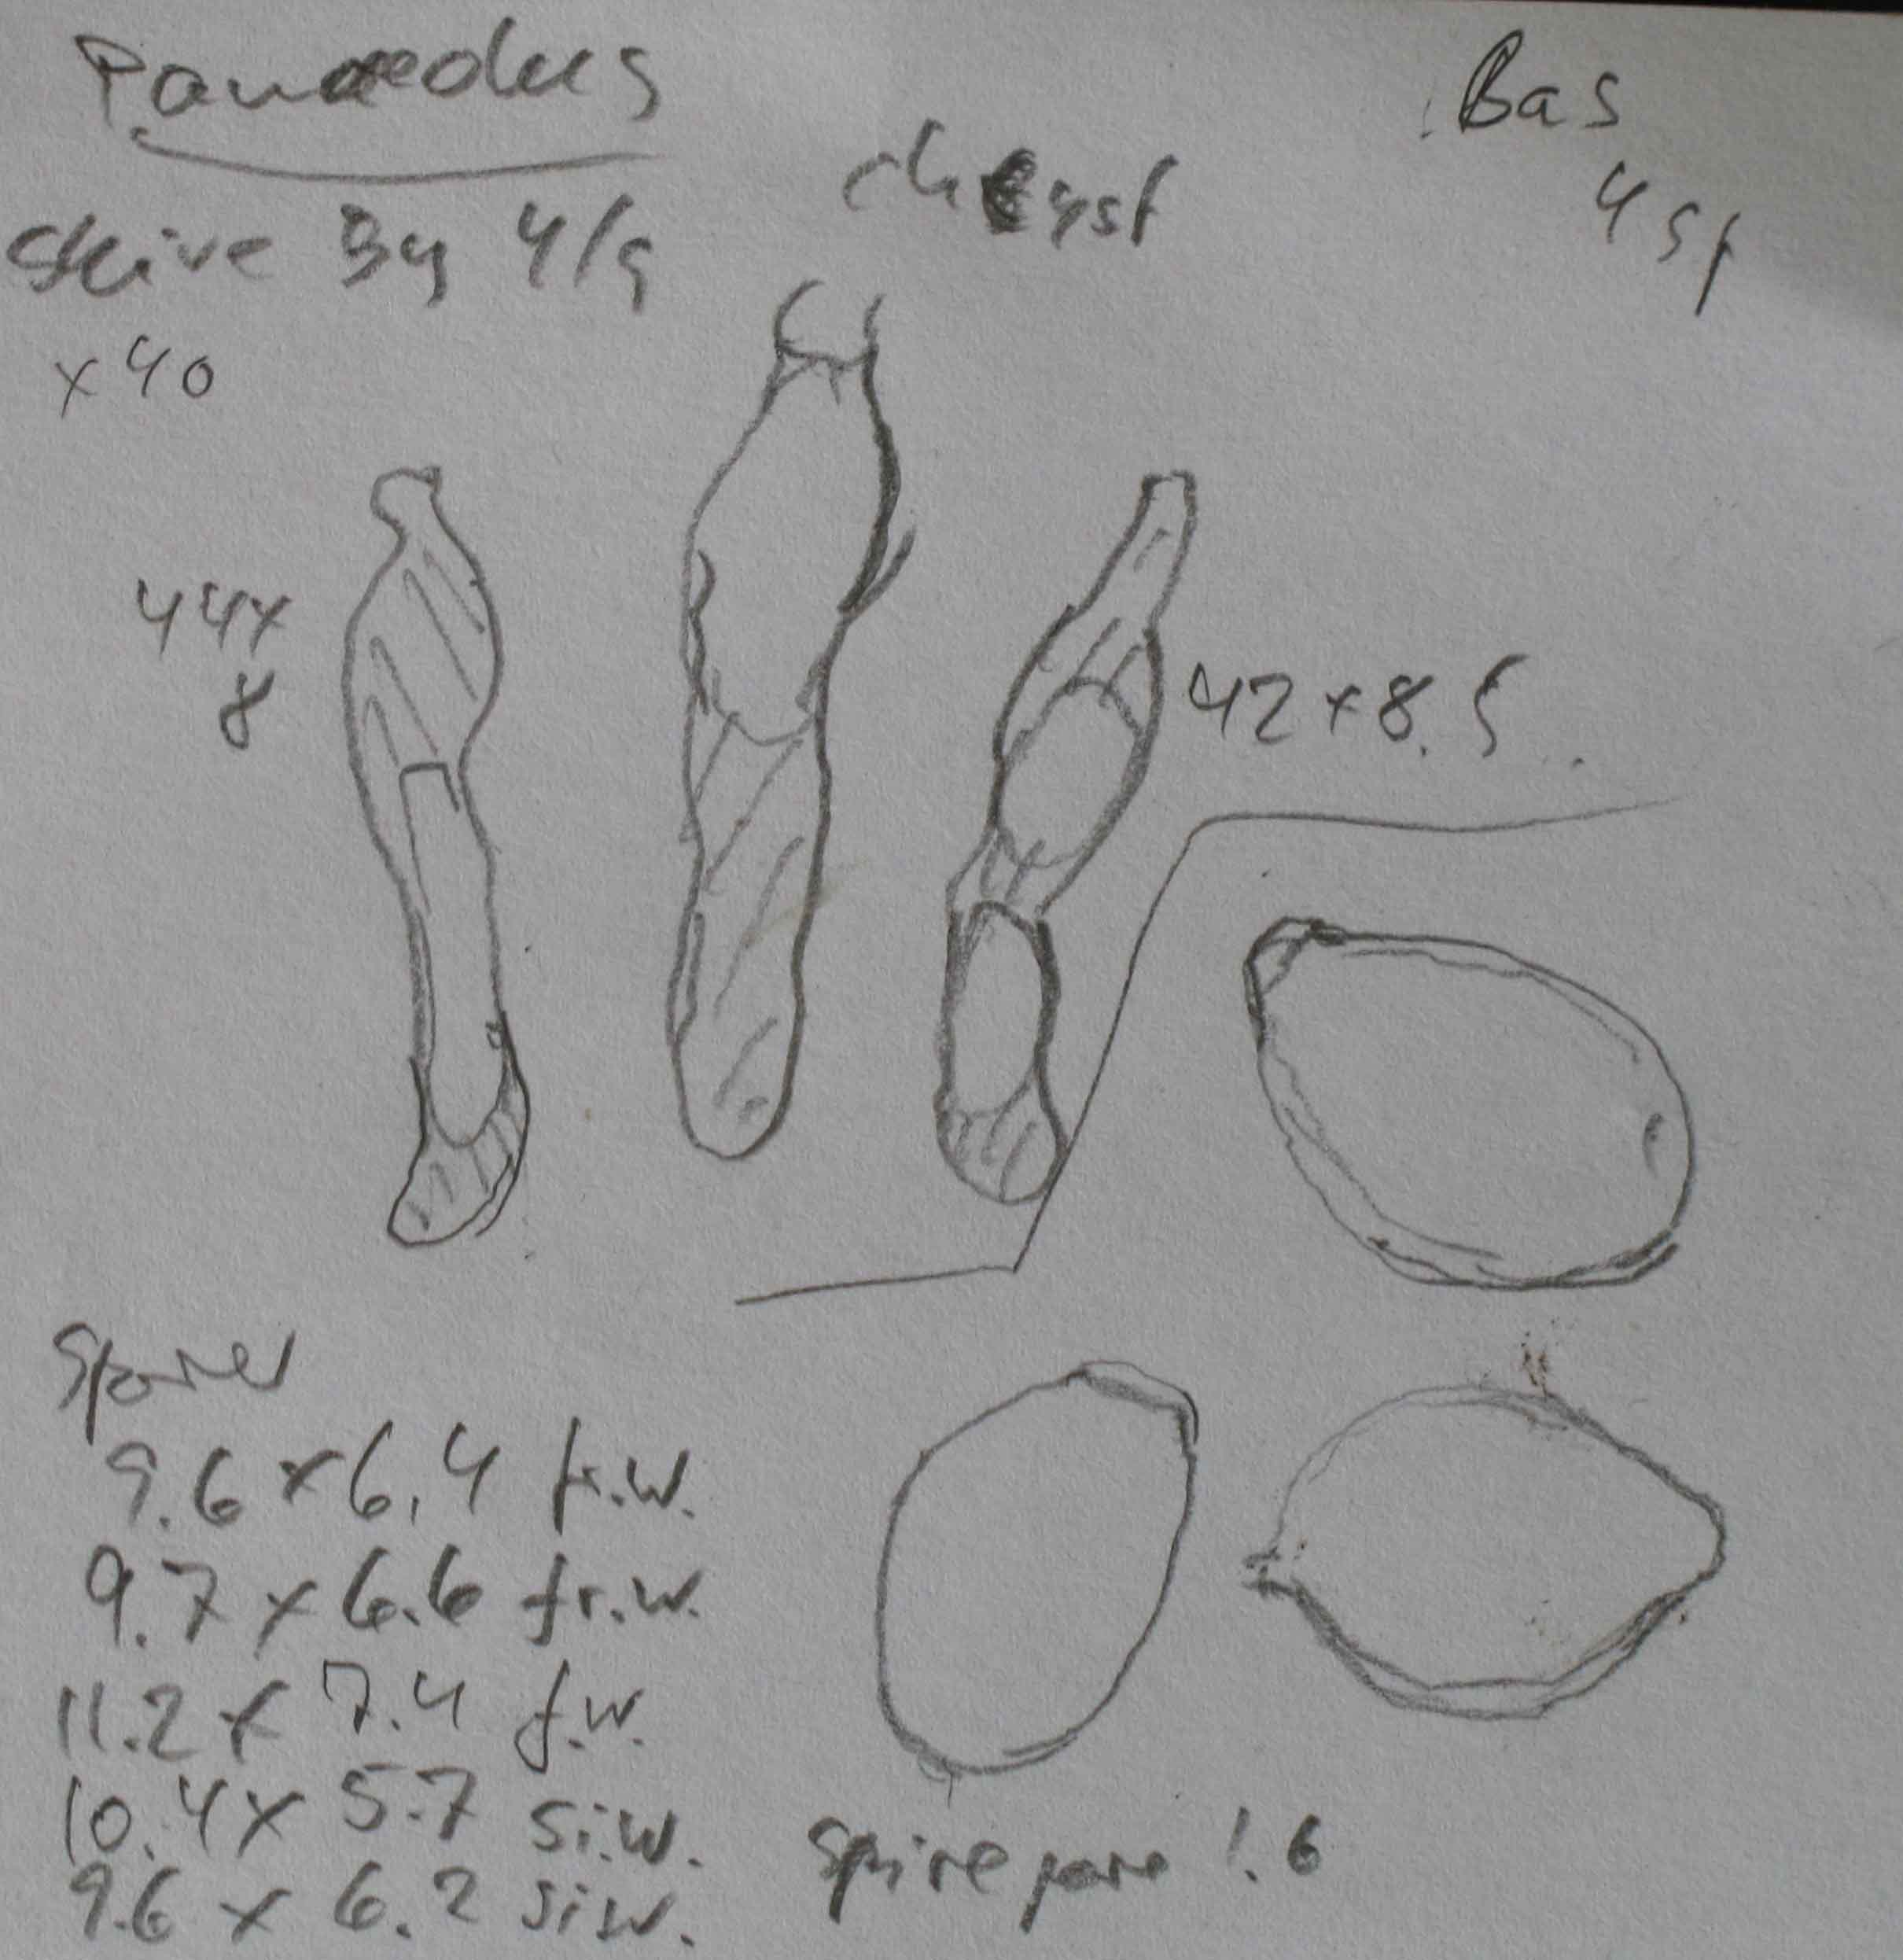 Panaeolus
Skive By 4/9
x40
chcyst
Bas
4 sp
44x
8
42x8.5
Sporer
9.6 x 6.4 fr.w.
9.7 x 6.6 fr.w.
11.2 x 7.4 f.w.
10.4 x 5.7 si.w.
9.6 x 6.2 si.w.
Spirepore 1.6